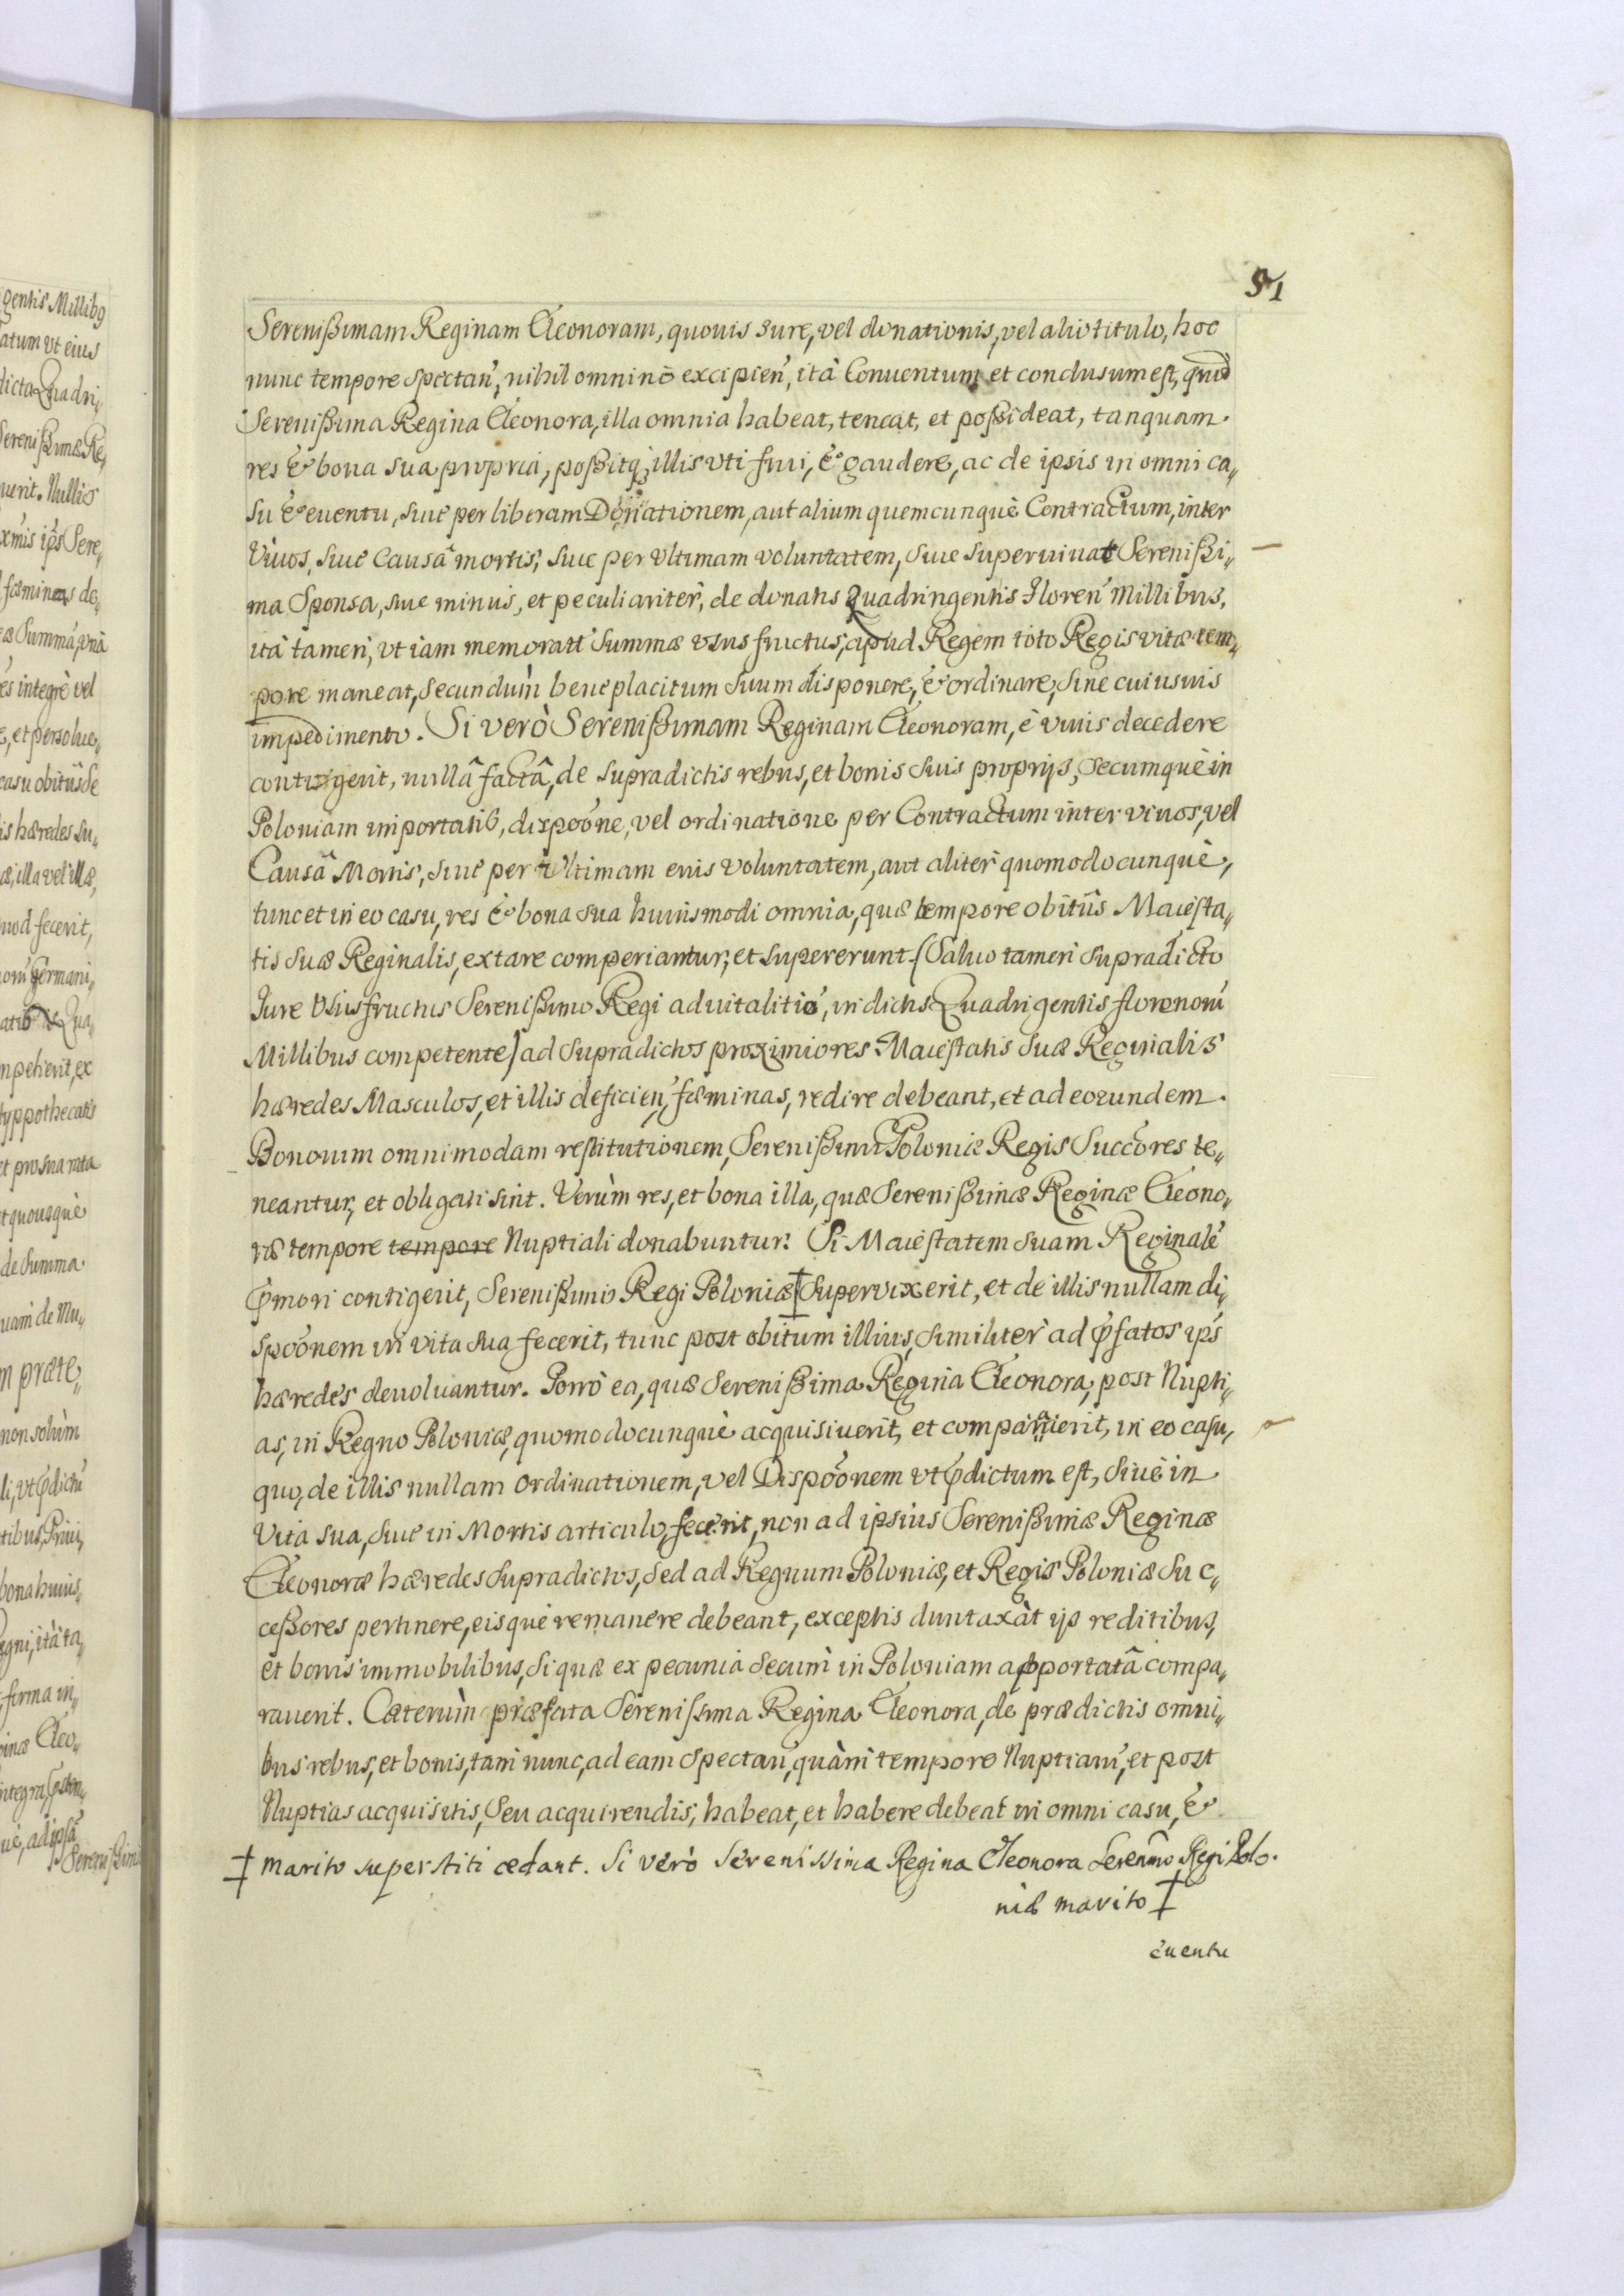 gentis Millibg
atum vt eius
dicta Quadri„
Serenißimæ Re„
uerit. Nullis
fæmineas de„
æ Summa, vnâ
és integrè vel
e, et persolue„
casu obitûs Se
is hæredes su„
æ, illa vel illæ,
uod fecerit,
germani„
mpetierit, ex
hyppothecatis
et pro sua rata
et quousquè
de Summa
uam de Mu„
m præte„
non solùm
li, vt p̄dictū
bona huius„
egni, ità ta„
forma in„
inæ Eleo„
uè, ad ipsā
Serenißimā
51
Serenißimam Reginam Eleonoram, quouis Iure, vel donationis, vel alio titulo, hoc
nunc tempore spectań, nihil omninò excipień, ità Conuentum et conclusum est, quòd
Serenißima Regina Eleonora, illa omnia habeat, teneat, et poßideat, tanquam
res & bona sua propria, poßitq; illis vti frui, & gaudere, ac de ipsis in omni ca„
su & euentu, siue per liberam Donationem, aut alium quemcunquè Contractum, inter
Viuos, siue Causâ mortis, siue per vltimam voluntatem, siue superuiuat Serenißi„
ma Sponsa, siue minus, et peculiariter, de donatis Quadringentis Floreń Millibus,
ità tamen, vt iam memorati Summæ vsus fructus, apud Regem toto Regis vitæ tem„
pore maneat, secundum beneplacitum suum disponere, & ordinare, sine cuiusuis
impedimento. Si verò Serenißimam Reginam Eleonoram, è viuis decedere
contigerit, nullâ factâ, de supradictis rebus, et bonis suis proprijs, secumquè in
Poloniam importatis, dispōone, vel ordinatione per Contractum inter viuos, vel
Causâ Mortis, siue per vltimam eius voluntatem, aut aliter quomodocunquè,
tunc et in eo casu, res & bona sua huiusmodi omnia, quæ tempore obitûs Maiesta„
tis suæ Reginalis, extare comperiantur, et supererunt (Saluo tamen supradicto
Iure Vsusfructus Serenißimo Regi aduitalitio, in dictis Quadrigentis florenorū
Millibus competente) ad supradictos proximiores Maiestatis suæ Reginalis
hæredes Masculos, et illis deficień, fæminas, redire debeant, et ad eorundem
Bonorum omnimodam restitutionem, Serenißimi Poloniæ Regis Succōres te„
neantur, et obligati sint. Verùm res, et bona illa, quæ Serenißimæ Reginæ Eleono„
ræ tempore tempore Nuptiali donabuntur: Si Maiestatem suam Reginalē
p̄mori contigerit, Serenißimo Regi Poloniæ ‡ Supervixerit, et de illis nullam di„
spōonem in vita sua fecerit, tunc post obitum illius, similiter ad p̄fatos ip̄s
hæredes deuoluantur. Porrò ea, quæ Serenißima Regina Eleonora, post Nupti„
as, in Regno Poloniæ, quomodocunquè acquisiuerit, et comparauerit, in eo casu,
quo, de illis nullam ordinationem, vel Dispōonem vt p̄dictum est, siuè in
Vita sua, siue in Mortis articulo, fecerit, non ad ipsius Serenißimæ Reginæ
Eleonoræ hæredes supradictos, sed ad Regnum Poloniæ, et Regis Poloniæ suc„
ceßores pertinere, eisquè remanere debeant, exceptis duntaxàt ijs reditibus,
et bonis immobilibus, si quæ ex pecunia secum in Poloniam apportatâ compa„
rauerit. Cæterùm præfata Serenissima Regina Eleonora, de prædictis omni„
bus rebus, et bonis, tam nunc, ad eam spectań, quàm tempore Nuptiarū, et post
Nuptias acquisitis, seu acquirendis, habeat, et habere debeat in omni casu, &
‡ marito superstiti cedant. Si verò Serenissima Regina Eleonora Serenmo Regi Polo.
niæ marito ‡
euentu